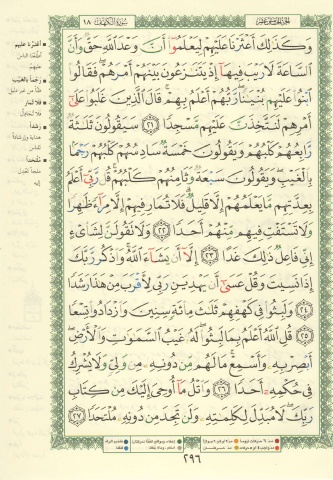 الجزء الخامس عشر
سورة الكهف ١٨
وَكَذَٰلِكَ أَعْثَرْنَا عَلَيْهِمْ لِيَعْلَمُوٓا۟ أَنَّ وَعْدَ ٱللَّهِ حَقٌّ وَأَنَّ
ٱلسَّاعَةَ لَا رَيْبَ فِيهَآ إِذْ يَتَنَٰزَعُونَ بَيْنَهُمْ أَمْرَهُمْ ۖ فَقَالُوا۟
ٱبْنُوا۟ عَلَيْهِم بُنْيَٰنًا ۖ رَّبُّهُمْ أَعْلَمُ بِهِمْ ۚ قَالَ ٱلَّذِينَ غَلَبُوا۟ عَلَىٰٓ
أَمْرِهِمْ لَنَتَّخِذَنَّ عَلَيْهِم مَّسْجِدًا ٢١ سَيَقُولُونَ ثَلَٰثَةٌ
رَّابِعُهُمْ كَلْبُهُمْ وَيَقُولُونَ خَمْسَةٌ سَادِسُهُمْ كَلْبُهُمْ رَجْمًۢا
بِٱلْغَيْبِ ۖ وَيَقُولُونَ سَبْعَةٌ وَثَامِنُهُمْ كَلْبُهُمْ ۚ قُل رَّبِّىٓ أَعْلَمُ
بِعِدَّتِهِم مَّا يَعْلَمُهُمْ إِلَّا قَلِيلٌ ۗ فَلَا تُمَارِ فِيهِمْ إِلَّا مِرَآءً ظَٰهِرًا
وَلَا تَسْتَفْتِ فِيهِم مِّنْهُمْ أَحَدًا ٢٢ وَلَا تَقُولَنَّ لِشَا۟ىْءٍ
إِنِّى فَاعِلٌ ذَٰلِكَ غَدًا ٢٣ إِلَّآ أَن يَشَآءَ ٱللَّهُ ۚ وَٱذْكُر رَّبَّكَ
إِذَا نَسِيتَ وَقُلْ عَسَىٰٓ أَن يَهْدِيَنِ رَبِّى لِأَقْرَبَ مِنْ هَٰذَا رَشَدًا
٢٤ وَلَبِثُوا۟ فِى كَهْفِهِمْ ثَلَٰثَ مِا۟ئَةٍ سِنِينَ وَٱزْدَادُوا۟ تِسْعًا
٢٥ قُلِ ٱللَّهُ أَعْلَمُ بِمَا لَبِثُوا۟ ۖ لَهُۥ غَيْبُ ٱلسَّمَٰوَٰتِ وَٱلْأَرْضِ ۖ
أَبْصِرْ بِهِۦ وَأَسْمِعْ ۚ مَا لَهُم مِّن دُونِهِۦ مِن وَلِىٍّ وَلَا يُشْرِكُ
فِى حُكْمِهِۦٓ أَحَدًا ٢٦ وَٱتْلُ مَآ أُوحِىَ إِلَيْكَ مِن كِتَابِ
رَبِّكَ ۖ لَا مُبَدِّلَ لِكَلِمَٰتِهِۦ وَلَن تَجِدَ مِن دُونِهِۦ مُلْتَحَدًا ٢٧
٢٩٦